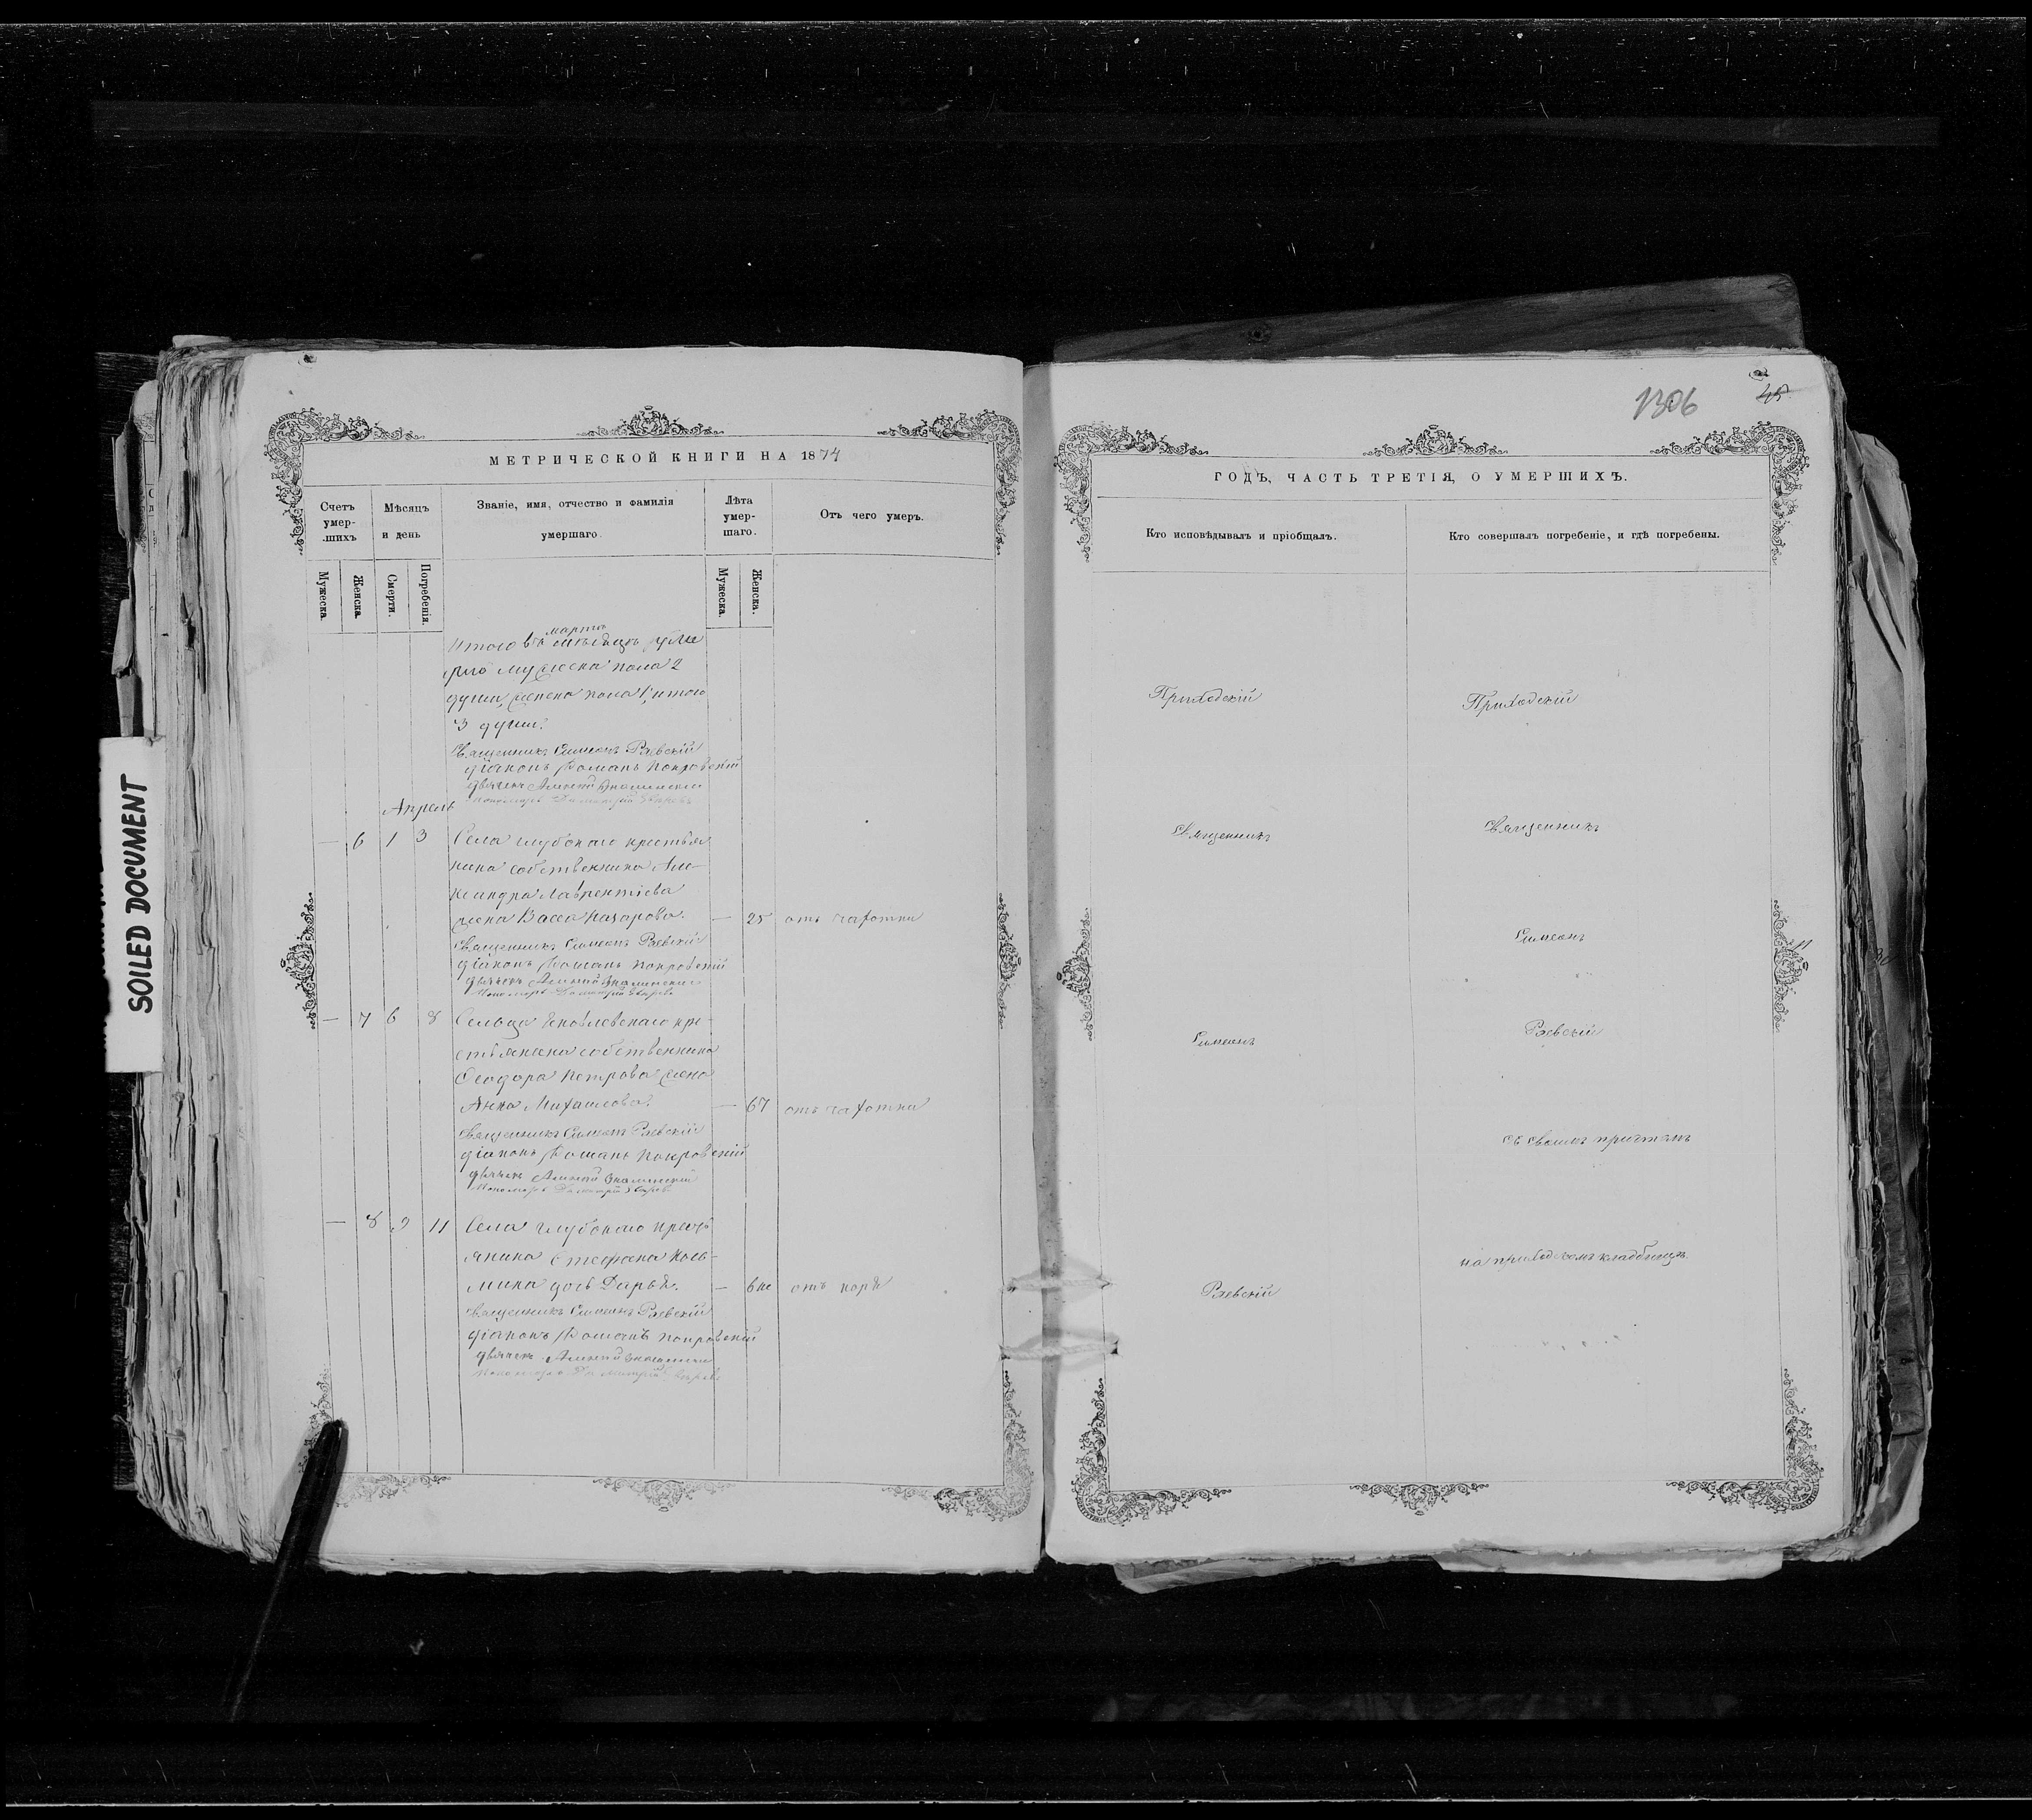 SOILED DOCUMENT
МЕТРИЧЕСКОЙ КНИГИ НА 1874
Счетъ умер-шихъ
Мѣсяцъ и день
Званіе, имя, отчество и фамилія умершаго.
Лѣта умер-шаго.
Отъ чего умеръ.
Мужеска.
Женска.
Смерти.
Погребенія.
Мужеска.
Женска.
марта
Итого въ мѣсяцѣ уме
рло мужеска пола 2
души, женска пола 1, итого
3 души.
Священникъ Симеонъ Раевскій
діаконъ Романъ Покровскій
дьячекъ Алексѣй Знаменскій
Пономарь Димитрій Звѣревъ
Апрель
— 6 1 3 Села Глубокаго крестья
нина собственника Але-
ксандра Лаврентіева
жена Васса Назарова. — 25 отъ чахотки
Священникъ Симеонъ Раевскій
діаконъ Романъ Покровскій
дьячекъ Алексѣй Знаменскій
Пономарь Димитрій Звѣревъ
— 7 6 8 Сельца Яковлевскаго кре-
стьянина собственника
Ѳеодора Петрова жена
Анна Михаилова. — 67 отъ чахотки
Священникъ Симеонъ Раевскій
діаконъ Романъ Покровскій
дьячекъ Алексѣй Знаменскій
Пономарь Димитрій Звѣревъ
— 8 9 11 Села Глубокаго кресть
янина Стефана Козь-
мина дочь Дарья. — 6 не отъ кори
Священникъ Симеонъ Раевскій
діаконъ Романъ Покровскій
дьячекъ Алексѣй Знаменскій
Пономарь Димитрій Звѣревъ
1306
45
ГОДЪ, ЧАСТЬ ТРЕТІЯ, О УМЕРШИХЪ.
Кто исповѣдывалъ и пріобщалъ.
Кто совершалъ погребеніе, и гдѣ погребены.
Приходскій
Священникъ
Симеонъ
Раевскій
Приходскій
Священникъ
Симеонъ
Раевскій
съ своимъ причтомъ
на приходскомъ кладбищѣ.